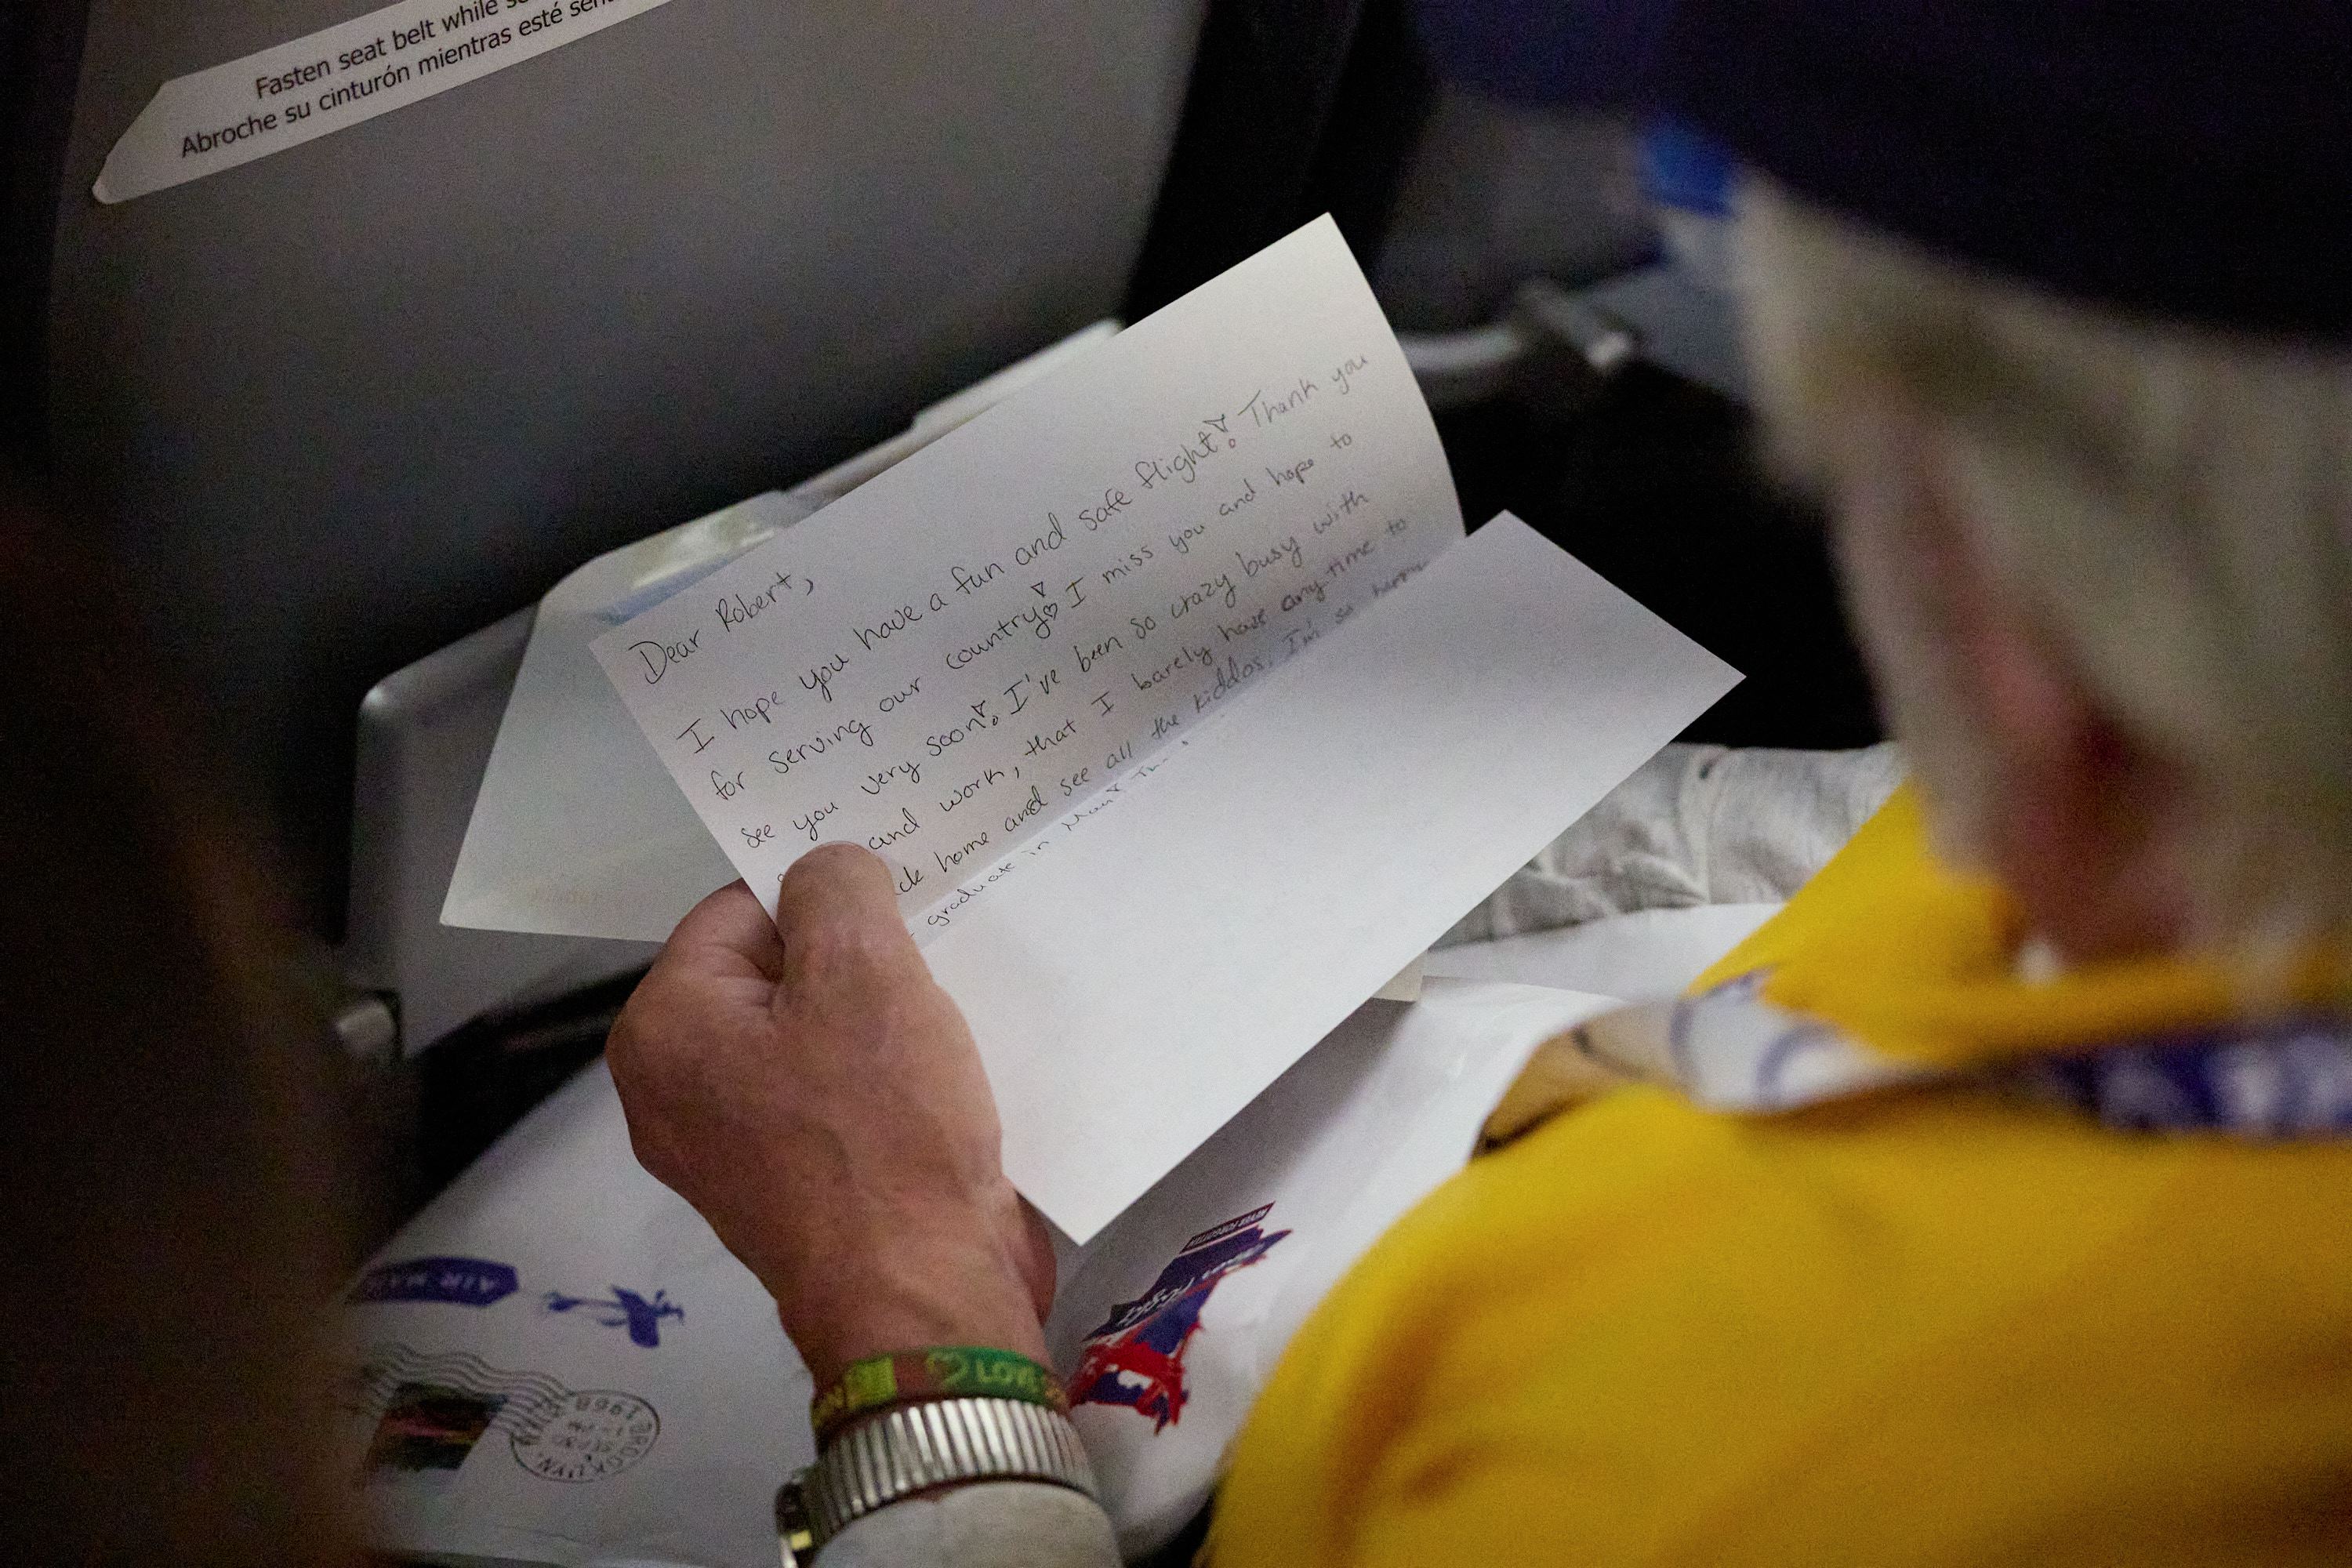 Fasten seat belt while
Abroche su cinturón mientras esté
Dear Robert,
I hope you have a fun and safe flight! Thank you
for serving our country! I miss you and hope to
see you very soon! I've been so crazy busy with
and work, that I barely have any time to
home and see all the kiddos. I'm so happy
graduate in
AIR MAIL
NEVER FORGOTTEN
BROOKLYN,
1968
LOVE